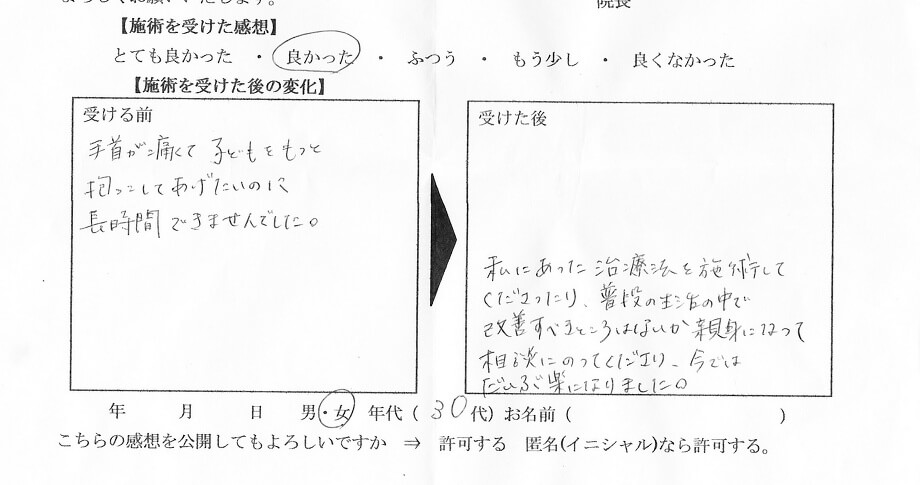 よろしくお願いいたします。 院長
【施術を受けた感想】
とても良かった ・ 良かった ・ ふつう ・ もう少し ・ 良くなかった
【施術を受けた後の変化】
受ける前
手首が痛くて子どもをもっと
抱っこしてあげたいのに
長時間できませんでした。
受けた後
私にあった治療法を施術して
くださったり、普段の生活の中で
改善すべきところはないか親身になって
相談にのってくださり、今では
だいぶ楽になりました。
年 月 日 男・女 年代（30代）お名前（ ）
こちらの感想を公開してもよろしいですか ⇒ 許可する 匿名(イニシャル)なら許可する。